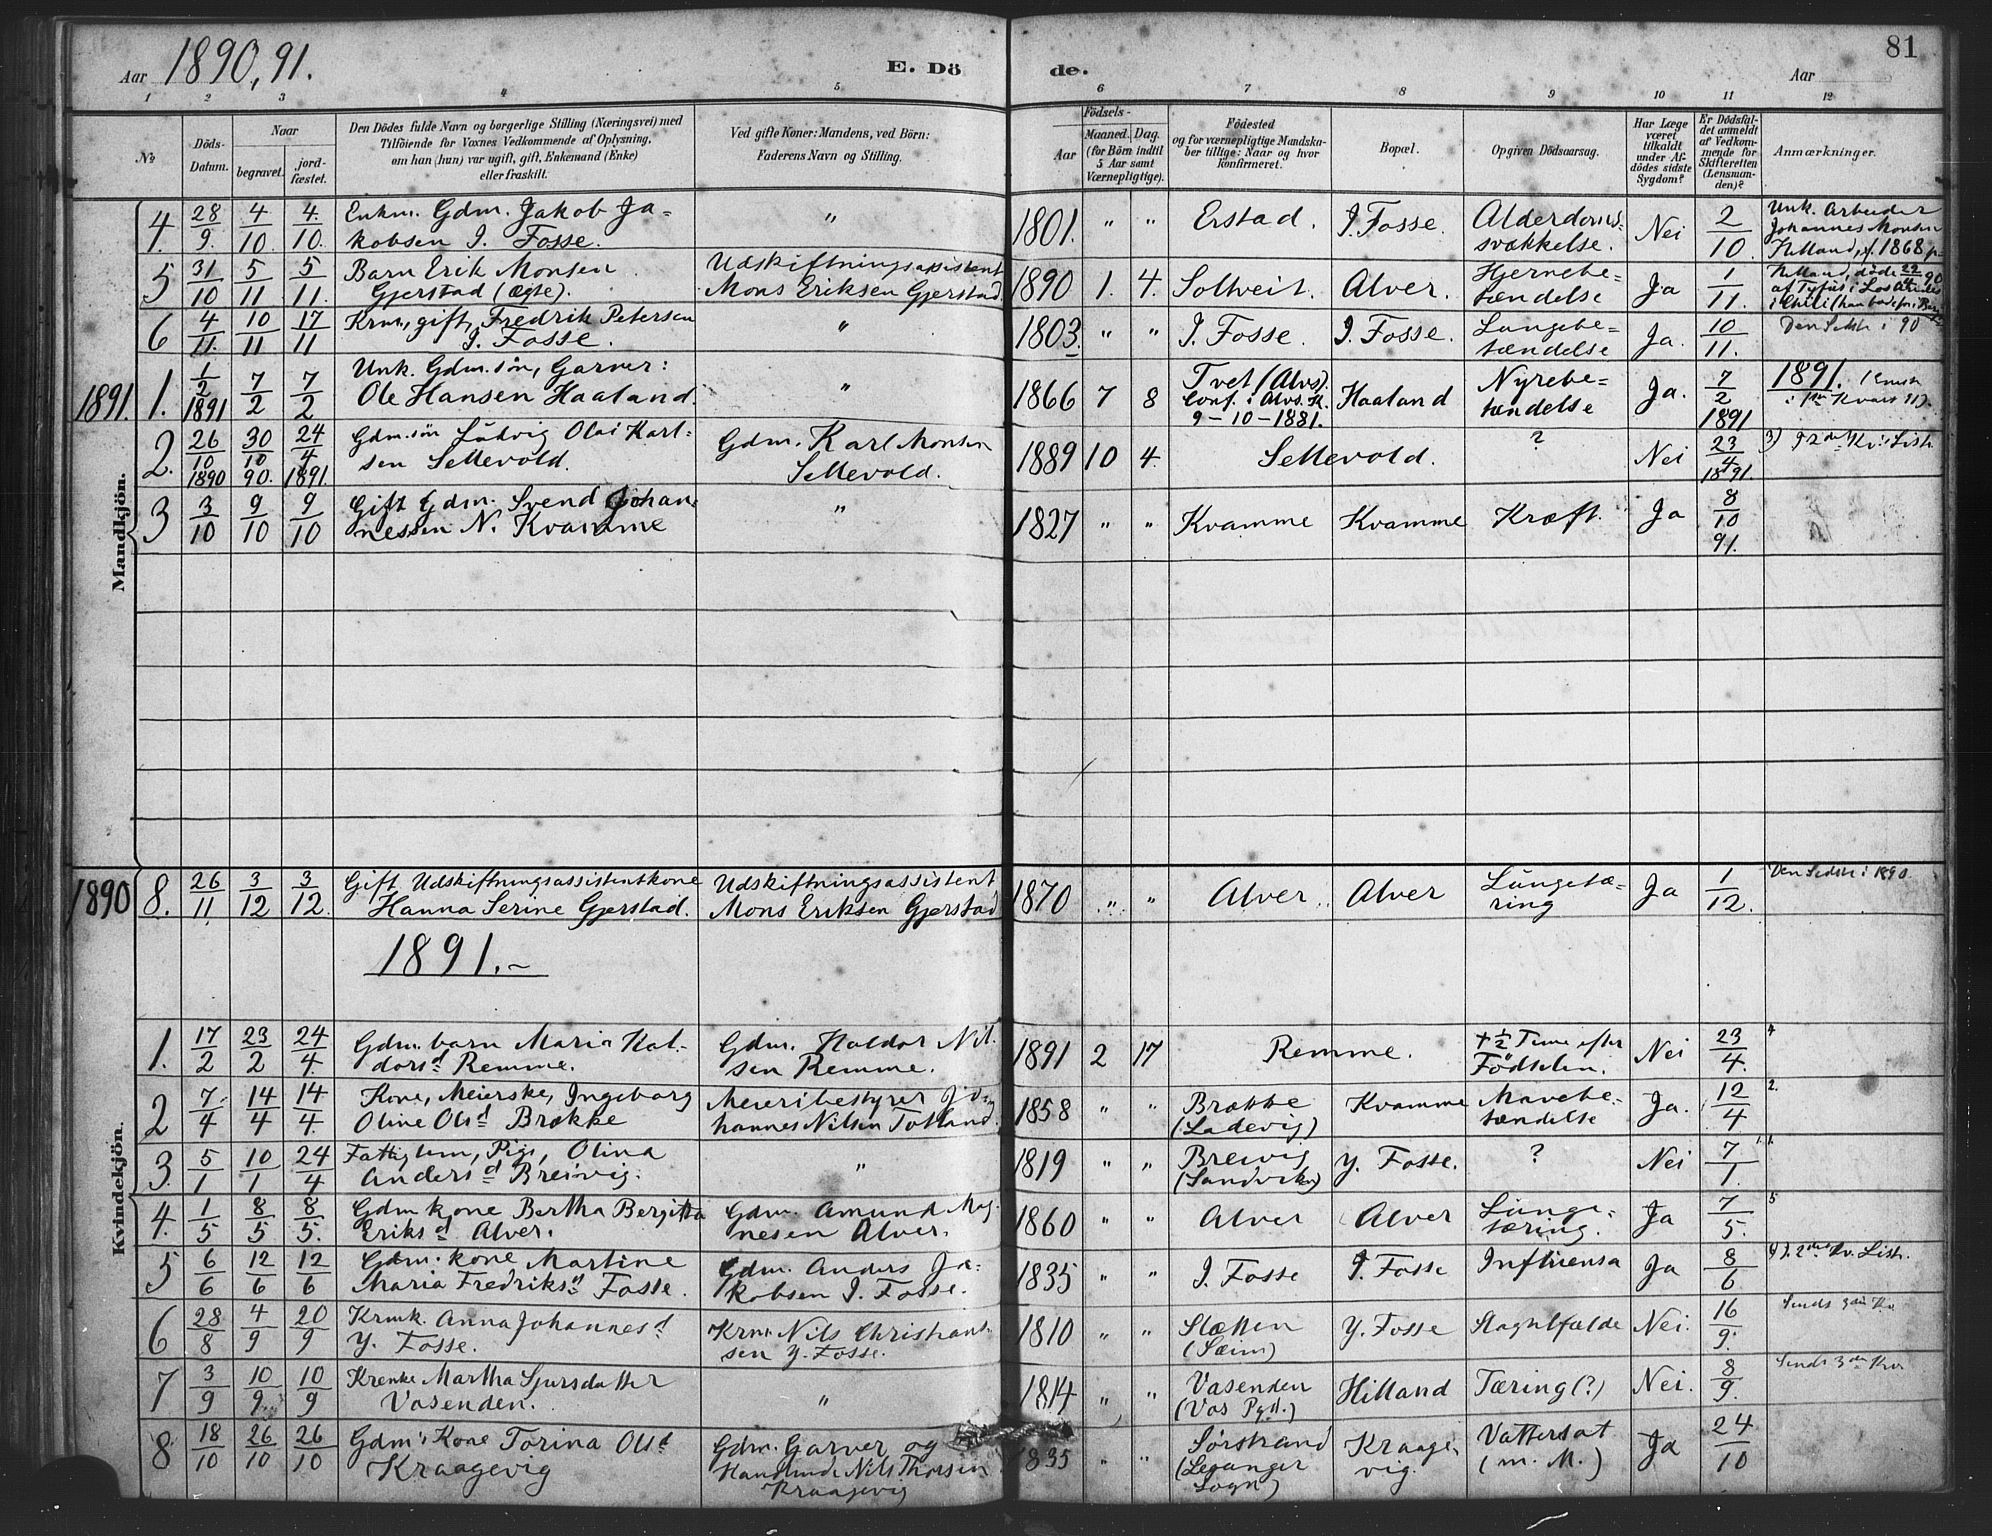 Aar 1890, 91.
E. Dö de.
Aar
81
1 2 3 4 5 6 7 8 9 10 11 12
№
Döds-
Datum.
Naar
begravet.
jord-
fæstet.
Den Dödes fulde Navn og borgerlige Stilling (Næringsvei) med
Tilföiende for Voxnes Vedkommende af Oplysning,
om han (hun) var ugift, gift, Enkemand (Enke)
eller fraskilt.
Ved gifte Koner: Mandens, ved Börn:
Faderens Navn og Stilling.
Födsels-
Aar
Maaned. Dag.
(for Börn indtil
5 Aar samt
Værnepligtige).
Födested
og for værnepligtige Mandska-
ber tillige: Naar og hvor
konfirmeret.
Bopæl.
Opgiven Dödsaarsag.
Har Læge
været
tilkaldt
under Af-
dödes sidste
Sygdom?
Er Dödsfal-
det anmeldt
af Vedkom-
mende for
Skifteretten
(Lensman-
den)?
Anmærkninger.
Mandkjön.
4. 28/9 4/10. 4./10. Enkm. Gdm. Jakob Ja-
kobsen I. Fosse. " 1801. " " Erstad. I. Fosse. Alderdoms-
svækkelse. Nei 2/10
Unk. Arbeider
Johannes Monsen
Hilland, f. 1868
Hilland, døde 22/4 90
af Tyfus i Los Andes
i Chili
5 31/10 5/11 5/11. Barn Erik Monsen
Gjerstad (Ægte). Udskiftningsassistent
Mons Eriksen Gjerstad 1890 1. 4. Soltveit. Alver. Hjernebe-
tændelse Ja 1/11.
6 4/11. 10/11 17/11 Krm., gift, Fredrik Petersen
I. Fosse. " 1803. " " I. Fosse. I. Fosse. Lungebe-
tændelse Ja. 10/11. Den Sidste i 90
1891. 1. 1/2 1891 7/2 7/2 Unk. Gdm.søn, Garver:
Ole Hansen Haaland. " 1866 7 8 Tvet (Alvs).
Conf. i Alvs. K.
9-10-1881. Haaland Nyrebe-
tændelse Ja. 7/2 1891 1891.
2. 26/10 1890 30/10 90. 24/4 1891. Gdm.søn Ludvig Olai Karl-
sen Sellevold. Gdm. Karl Monsen
Sellevold. 1889 10 4. Sellevold. ? Nei 23/4 1891.
3 3/10 9/10 9/10 Gift Gdm. Svend Johan-
nessen N. Kvamme " 1827 " " Kvamme Kvamme Kræft. Ja 8/10 91.
Kvindekjön.
1890 8. 26/11 3/12 3/12. Gift Udskiftningsassistentkone
Hanna Serine Gjerstad. Udskiftningsassistent
Mons Eriksen Gjerstad 1870 " " Alver. Alver Lungetæ-
ring Ja 1/12. Den Sidste i 1890
1891.-
1. 17/2 23/2 24/4. Gdm. barn Maria Hal-
dorsd Remme. Gdm. Haldor Nil-
sen Remme. 1891 2 17 Remme. + 1/2 Time efter
Födselen. Nei 23/4. 4
2 7/4 14/4 14/4. Kone, Meierske, Ingeborg
Oline Olsd Brække Meieribestyrer Jo-
hannes Nilsen Totland. 1858 " " Brække
(Ladevig) Kvamme Mavebe-
tændelse Ja. 12/4 2.
3. 5/1 10/1 24/4 Fattiglem, Pige, Olina
Andersd Breivig. " 1819 " " Breivig
(Sandviken) Y. Fosse. ? Nei 7/1. 1.
4. 1/5 8/5 8/5. Gdm kone Bertha Bergitta
Eriksd Alver. Gdm. Amund Mag-
nesen Alver. 1860 " " Alver Alver Lunge-
tæring. Ja 7/5. 5
5 6/6 12/6 12/6 Gdm. kone Martine
Maria Fredriksd Fosse. Gdm. Anders Ja-
kobsen I. Fosse. 1835 " " I. Fosse I. Fosse Influensa Ja 8/6
6 28/8 4/9 20/9 Krmk. Anna Johannesd
Y. Fosse. Krm. Nils Christian-
sen Y. Fosse. 1810 " " Sletten
(Seim) Y. Fosse Slagtilfælde Nei. 16/9.
7 3/9 10/9. 10/9 Krenke Martha Sjursdatter
Vasenden. " 1814 " " Vasenden
(Vos Pgd.) Hilland Tæring (?) Nei. 8/9.
8 18/10 26/10 26/10 Gdm's Kone Torina Olsd
Kraagevig Gdm. Garver og
Handlende Nils Thorsen
Kraagevig 1835 " " Sørstrand
(Leganger
Sogn) Kraage-
vig. Vattersot
(m. M.) Ja 24/10